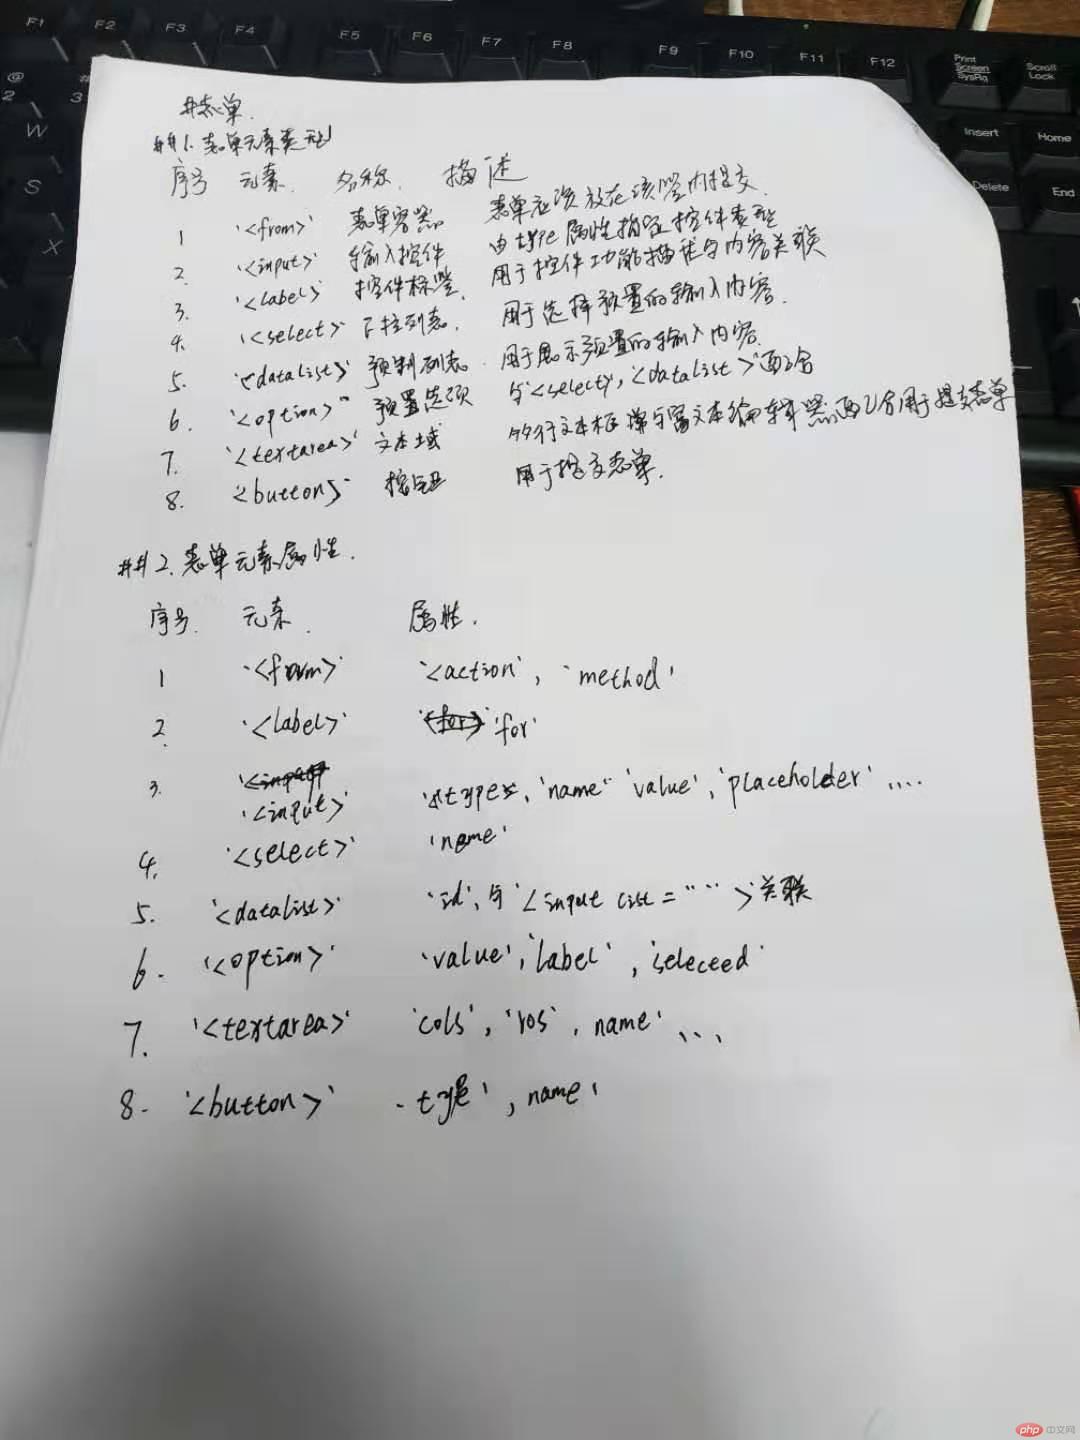 F1 F2 F3 F4 F5 F6 F7 F8 F9 F10 F11 F12 Print Screen SysRq Scroll Lock
@ 2 # 3
W
S
X
Insert Home
Delete End
#表单.
##1.表单元素类型
序号 元素. 名称. 描述
1 '<from>' 表单容器 表单应该放在该签内提交.
2. '<input>' 输入控件 由type属性指定控件类型
3. '<label>' 控件标签. 用于控件功能描述与内容关联
4. '<select>' 下拉列表. 用于选择预置的输入内容.
5. '<datalist>' 预制列表. 用于展示预置的输入内容.
6. '<option>' 预置选项 与<select>,'<datalist>'配合
7. '<textarea>' 文本域 多行文本框 常与富文本编辑器配合用于提交表单
8. '<button>' 按钮 用于提交表单.
##2.表单元素属性.
序号. 元素. 属性.
1 '<from>' '<action', 'method'
2. '<label>' 'for'
3. '<input>' 'type', 'name' 'value', 'placeholder' ....
4. '<select>' 'name'
5. '<datalist>' 'id', 与'<input list=“”>'关联
6. '<option>' 'value', 'label', 'seleceed'
7. '<textarea>' 'cols', 'ros', name' 、、、
8. '<button>' 'type', name'
php 中文网